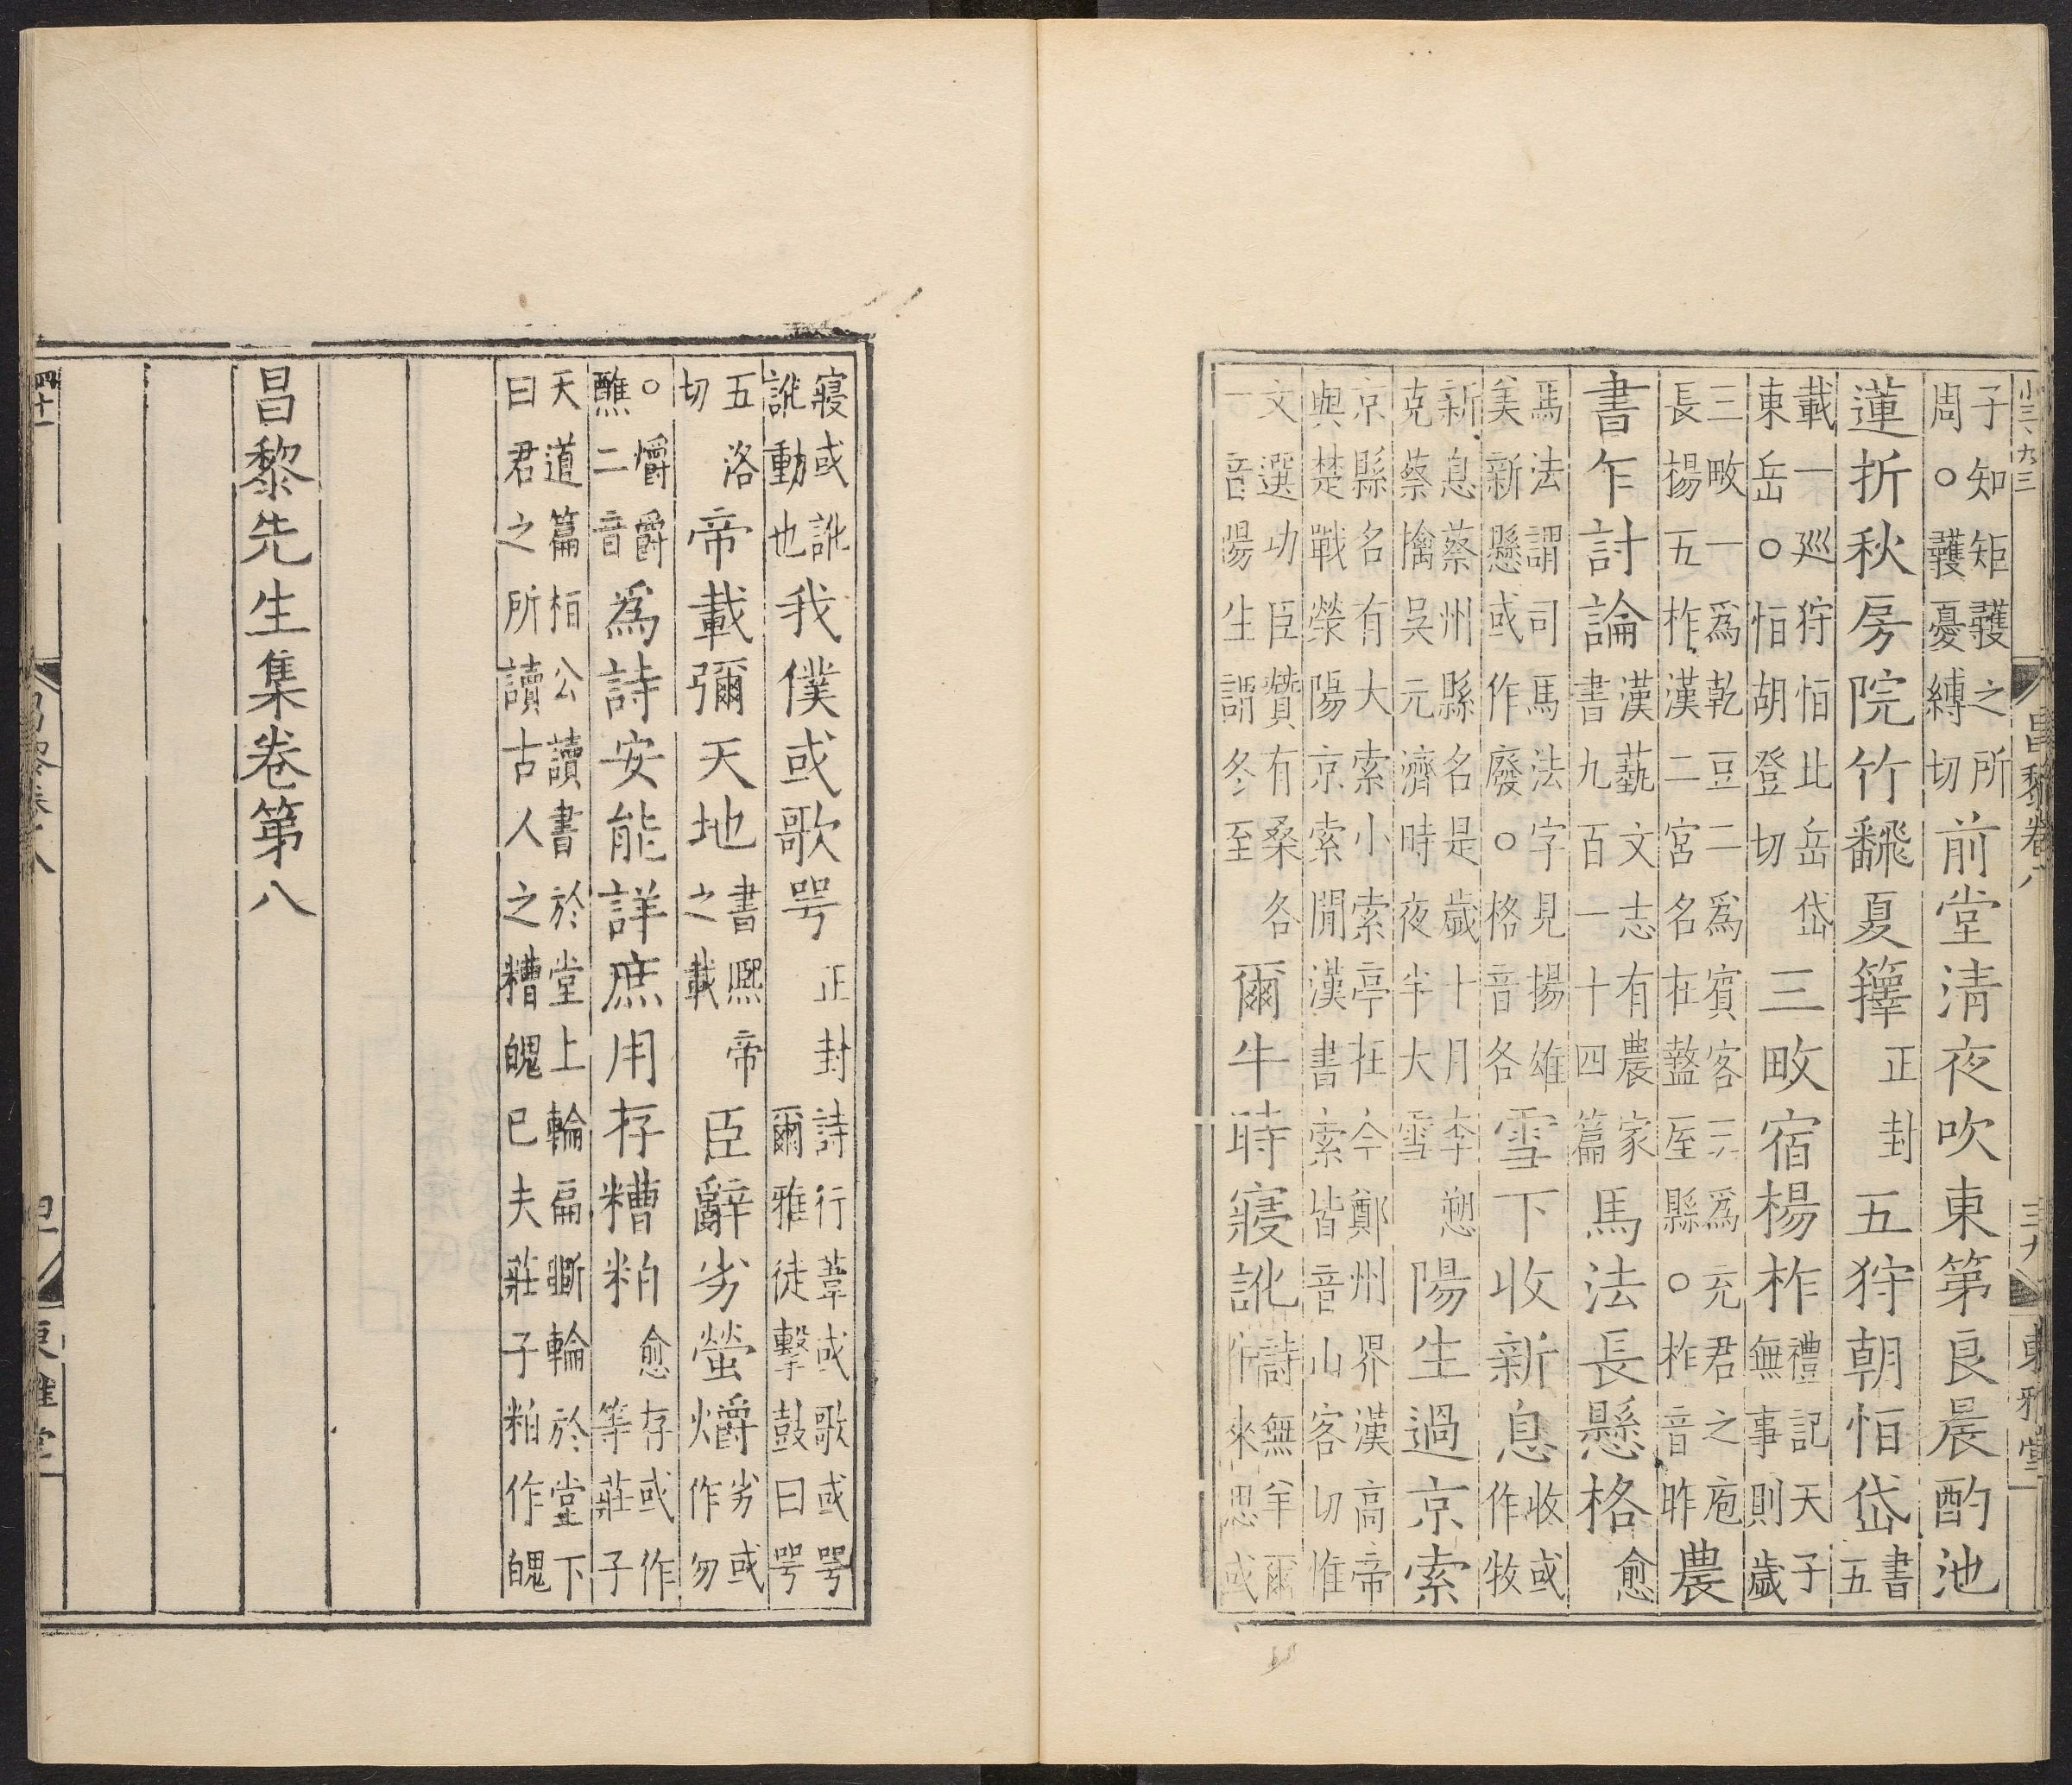 小三、九三 昌黎卷八 三九 東雅堂
子知矩彠之所
周○彠憂縛切
前堂清夜吹東第良晨酌池
蓮折秋房院竹飜夏籜 正封 五狩朝恒岱
書
五
載一廵狩恒北岳岱
東岳○恒胡登切
三畋宿楊柞
禮記天子
無事則歲
三畋一爲乾豆二爲賓客三爲充君之庖
長楊五柞漢二宮名在盩厔縣○柞音昨
農
書乍討論
漢藝文志有農家
書九百一十四篇
馬法長懸格 愈
馬法謂司馬法字見揚雄
美新懸或作廢○格音各
雪下收新息
收或
作牧
新息蔡州縣名是歲十月李愬
克蔡擒吳元濟時夜半大雪
陽生過京索
京縣名有大索小索亭在今鄭州界漢高帝
與楚戰滎陽京索間漢書索皆音山客切惟
文選功臣贊有桑各
一音陽生謂冬至
爾牛時寢訛
詩無羊爾
來思或
寢或訛
訛動也
我僕或歌咢 正封
詩行葦或歌或咢
爾雅徒擊鼓曰咢
五洛
切
帝載彌天地
書熙帝
之載
臣辭劣螢爝
劣或
作勿
○爝爵
醮二音
爲詩安能詳庶用存糟粕 愈
存或作
等莊子
天道篇桓公讀書於堂上輪扁斵輪於堂下
曰君之所讀古人之糟魄已夫莊子粕作魄
昌黎先生集卷第八
東雅堂